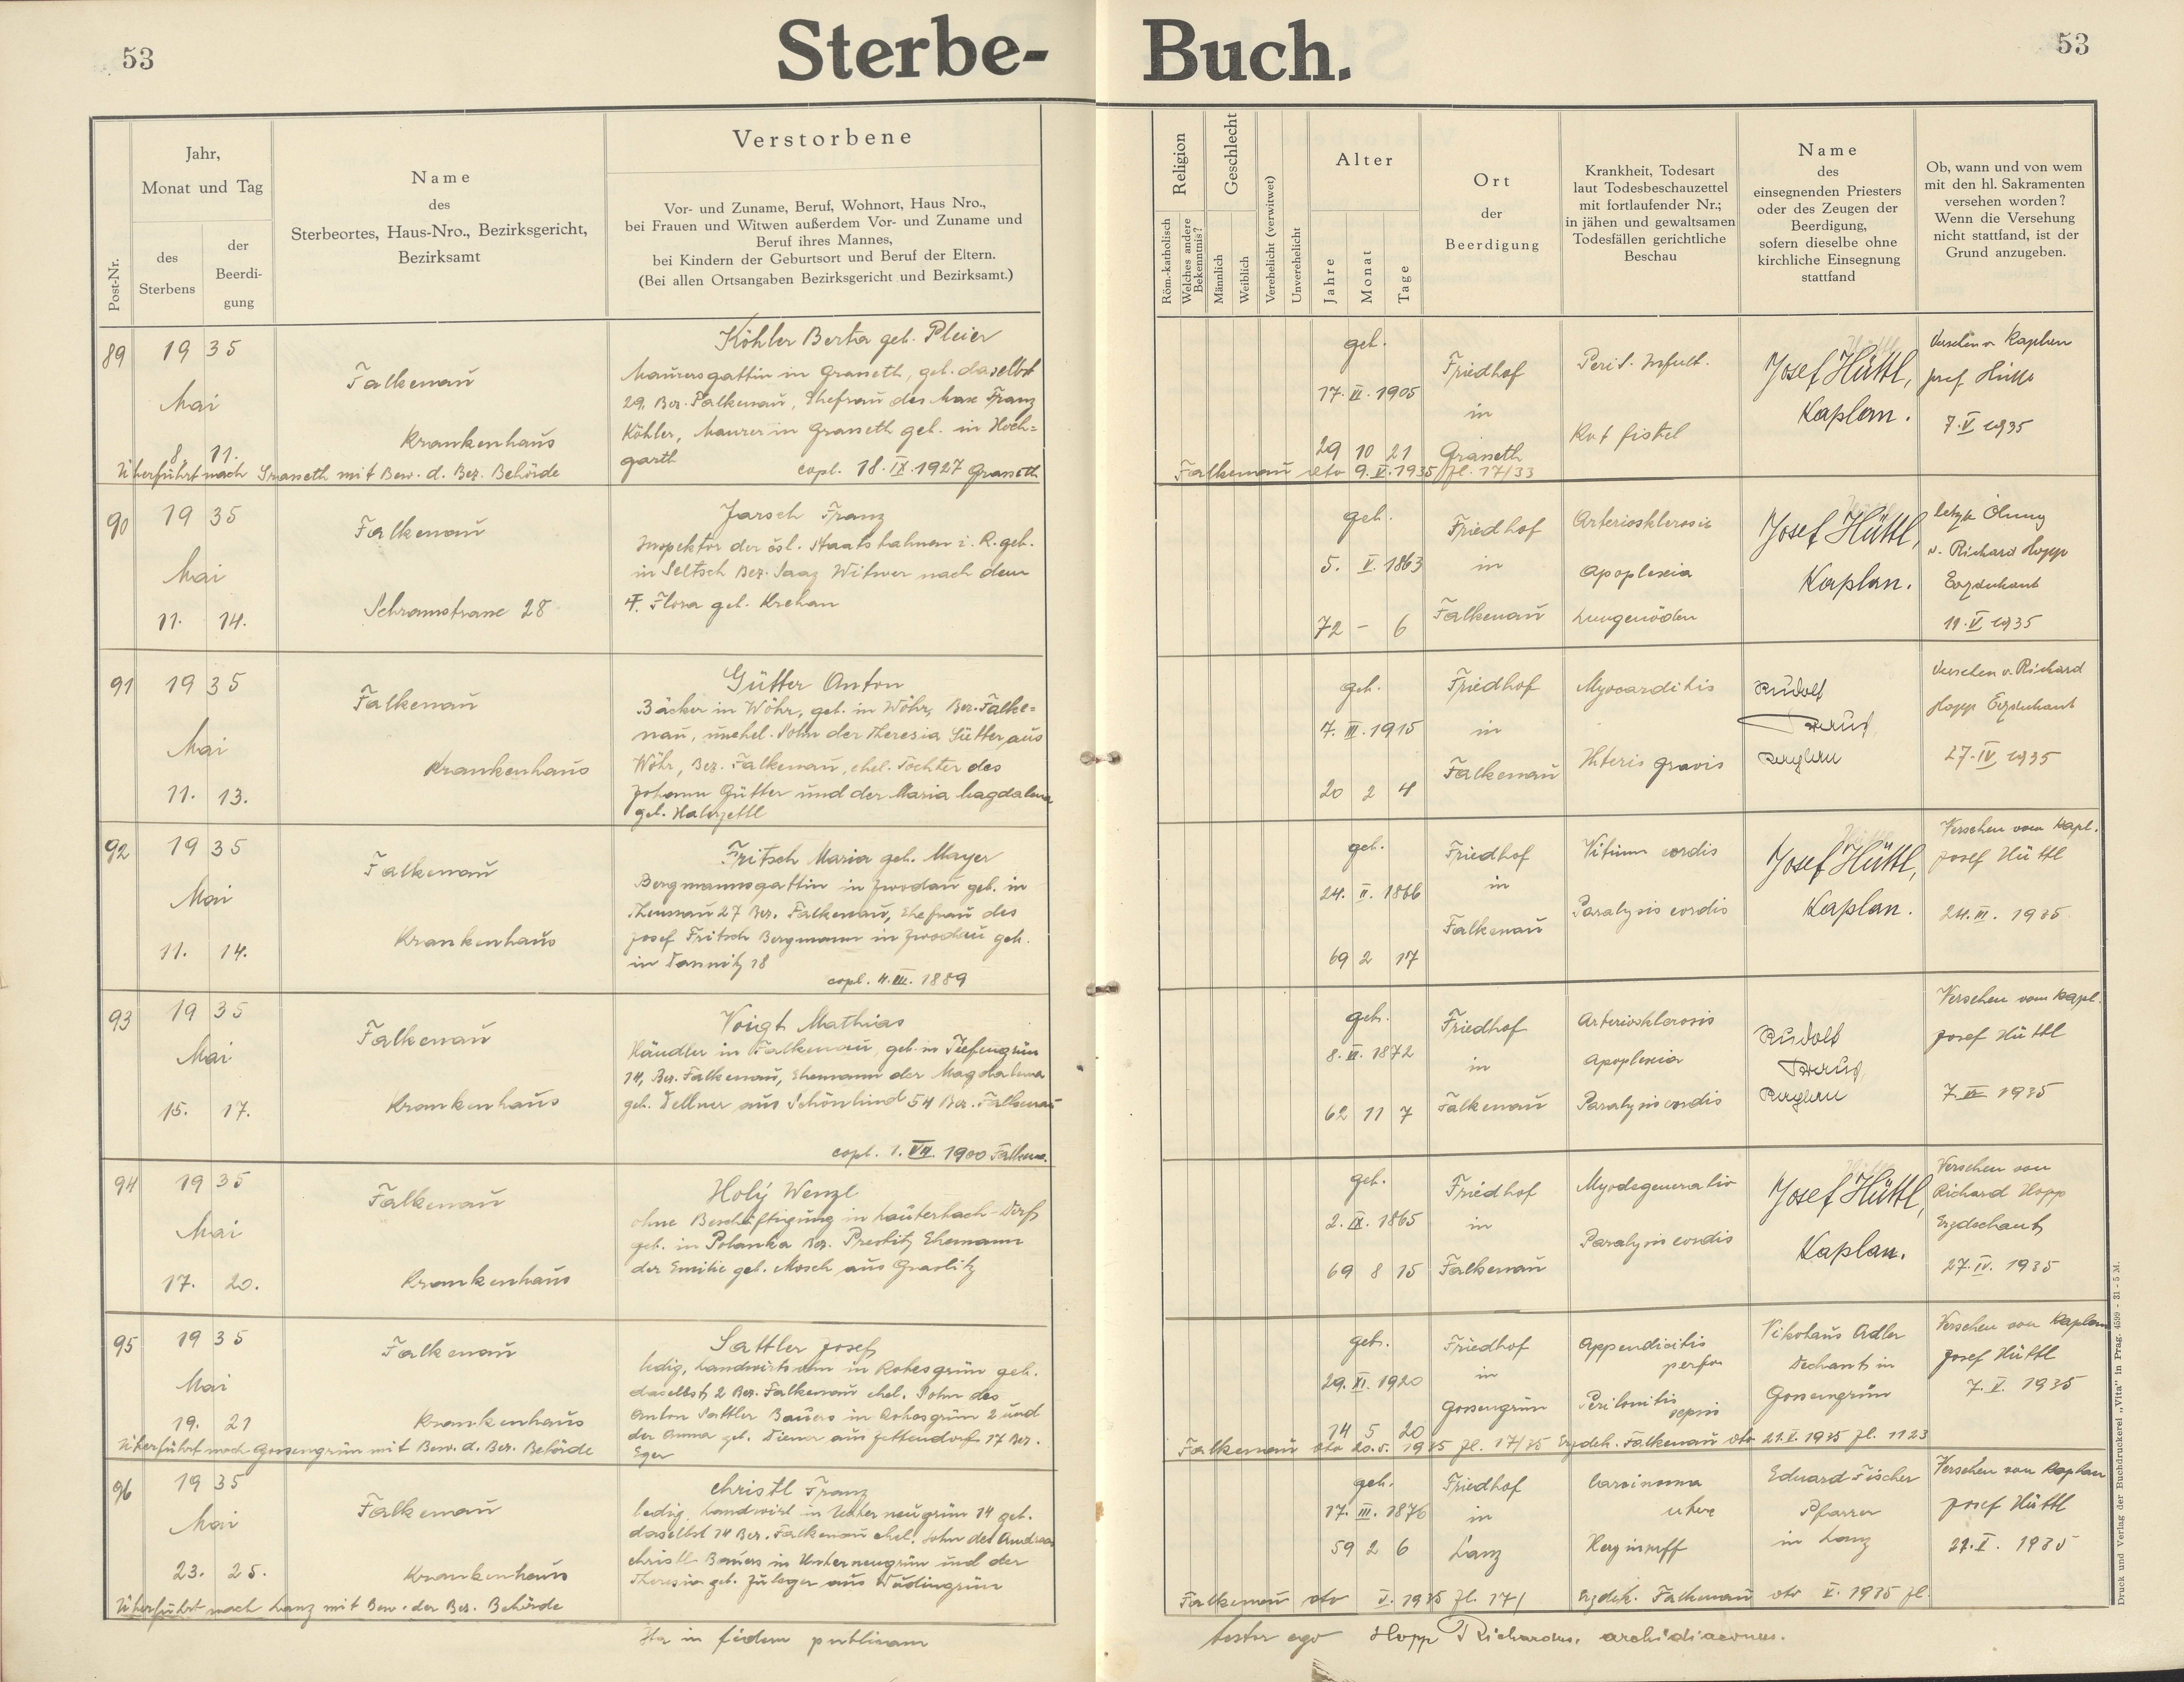 53
Sterbe- Buch.
53
Post-Nr.
Jahr,
Monat und Tag
des
Sterbens
der
Beerdi-
gung
Name
des
Sterbeortes, Haus-Nro., Bezirksgericht,
Bezirksamt
Verstorbene
Vor- und Zuname, Beruf, Wohnort, Haus Nro.,
bei Frauen und Witwen außerdem Vor- und Zuname und
Beruf ihres Mannes,
bei Kindern der Geburtsort und Beruf der Eltern.
(Bei allen Ortsangaben Bezirksgericht und Bezirksamt.)
Religion
Röm.-katholisch
Welches andere
Bekenntnis?
Geschlecht
Männlich
Weiblich
Verehelicht (verwitwet)
Unverehelicht
Alter
Jahre
Monat
Tage
Ort
der
Beerdigung
Krankheit, Todesart
laut Todesbeschauzettel
mit fortlaufender Nr.;
in jähen und gewaltsamen
Todesfällen gerichtliche
Beschau
Name
des
einsegnenden Priesters
oder des Zeugen der
Beerdigung,
sofern dieselbe ohne
kirchliche Einsegnung
stattfand
Ob, wann und von wem
mit den hl. Sakramenten
versehen worden?
Wenn die Versehung
nicht stattfand, ist der
Grund anzugeben.
89
19 35
Mai
8. 11.
Falkenau
Krankenhaus
Überführt nach Graseth mit Bew. d. Bez. Behörde
Köhler Berta geb. Pleier
Maurersgattin in Graseth, geb. daselbst
29, Bez. Falkenau, Ehefrau des Max Franz
Köhler, Maurer in Graseth geb. in Hoch-
garth
copl. 18. IX. 1927 Graseth
geb.
17. VI. 1905
29 10 21
Friedhof
in
Graseth
Falkenau dto 9. V. 1935 fl. 17/33
Perit.
fistel
Josef Hüttl,
Kaplan.
Versehen v. Kaplan
Josef Hüttl
7. V 1935
90
19 35
Mai
11. 14.
Falkenau
Schramstrasse 28
Jarsch Franz
Inspektor der čsl. Staatsbahnen i. R. geb.
in Seltsch Bez. Saaz Witwer nach dem
† Flora geb. Krehan
geb.
5. V. 1863
72 - 6
Friedhof
in
Falkenau
Arteriosklerosis
Apoplexia
Lungenödem
Josef Hüttl,
Kaplan.
letzte Ölung
v. Richard Hopp
Erzdechant
11. V 1935
91
19 35
Mai
11. 13.
Falkenau
Krankenhaus
Gütter Anton
Bäcker in Wöhr, geb. in Wöhr, Bez. Falke-
nau, unehel. Sohn der Theresia Gütter aus
Wöhr, Bez. Falkenau, ehel. Tochter des
Johann Gütter und der Maria Magdalena
geb.
geb.
7. III. 1915
20 2 4
Friedhof
in
Falkenau
Myocarditis
Ikteris gravis
Rudolf
Versehen v. Richard
Hopp Erzdechant
27. IV 1935
92
19 35
Mai
11. 14.
Falkenau
Krankenhaus
Fritsch Maria geb. Mayer
Bergmannsgattin in Zwodau geb. in
Themau 27 Bez. Falkenau, Ehefrau des
Josef Fritsch Bergmann in Zwodau geb.
in
copl. 4. III. 1889
geb.
24. II. 1866
69 2 17
Friedhof
in
Falkenau
Vitium cordis
Paralysis cordis
Josef Hüttl,
Kaplan.
Versehen vom Kapl.
Josef Hüttl
24. III. 1935
93
19 35
Mai
15. 17.
Falkenau
Krankenhaus
Voigt Mathias
Händler in Falkenau, geb. in Tiefengrün
14, Bez. Falkenau, Ehemann der Magdalena
geb. Dellner aus Schönlind 54 Bez. Falkenau
copl. 1. VII. 1900 Falkenau.
geb.
8. VI. 1872
62 11 7
Friedhof
in
Falkenau
Arteriosklerosis
Apoplexia
Paralysis cordis
Rudolf
Versehen vom Kapl.
Josef Hüttl
1935
94
19 35
Mai
17. 20.
Falkenau
Krankenhaus
Holý Wenzl
ohne Beschäftigung in Lauterbach-Dorf
geb. in Polanka Bez. Prestitz Ehemann
der Emilie geb. Mosch aus Graslitz
geb.
2. IX. 1865
69 8 15
Friedhof
in
Falkenau
Myodegeneratio
Paralysis cordis
Josef Hüttl,
Kaplan.
Versehen von
Richard Hopp
Erzdechant
27. IV. 1935
95
19 35
Mai
19. 21
Falkenau
Krankenhaus
Überführt nach Gossengrün mit Bew. d. Bez. Behörde
Sattler Josef
ledig, Landwirtssohn in Robesgrün geb.
daselbst 2 Bez. Falkenau ehel. Sohn des
Anton Sattler Bauers in Robesgrün 2 und
der Anna geb. Diener aus Zettendorf 17 Bez.
Eger
geb.
29. XI. 1920
14 5 20
Friedhof
in
Gossengrün
Appendicitis
perfor
Peritonitis
sepsis
Nikolaus Adler
Dechant in
Gossengrün
Versehen von Kaplan
Josef Hüttl
7. V. 1935
Falkenau dto 20. V. 1935 fl. 17/35 Erzdek. Falkenau dto 21. V. 1935 fl. 1123
96
19 35
Mai
23. 25.
Falkenau
Krankenhaus
Überführt nach Lanz mit Bew. der Bez. Behörde
Christl Franz
ledig, Landwirt in Unterneugrün 14 geb.
daselbst 14 Bez. Falkenau ehel. Sohn des Andreas
Christl Bauers in Unterneugrün und der
Theresia geb. Zuleger aus
geb.
17. III. 1876
59 2 6
Friedhof
in
Lanz
Carcinoma
Eduard Fischer
Pfarrer
in Lanz
Versehen von Kaplan
Josef Hüttl
21. V. 1935
Falkenau dto V. 1935 fl. 17/ Erzdek. Falkenau dto V. 1935 fl.
Ita in fidem publicam
testor ego Hopp Richardus, archidiaconus.
Druck und Verlag der Buchdruckerei „Vita" in Prag. 4599 - 31 - 5 M.